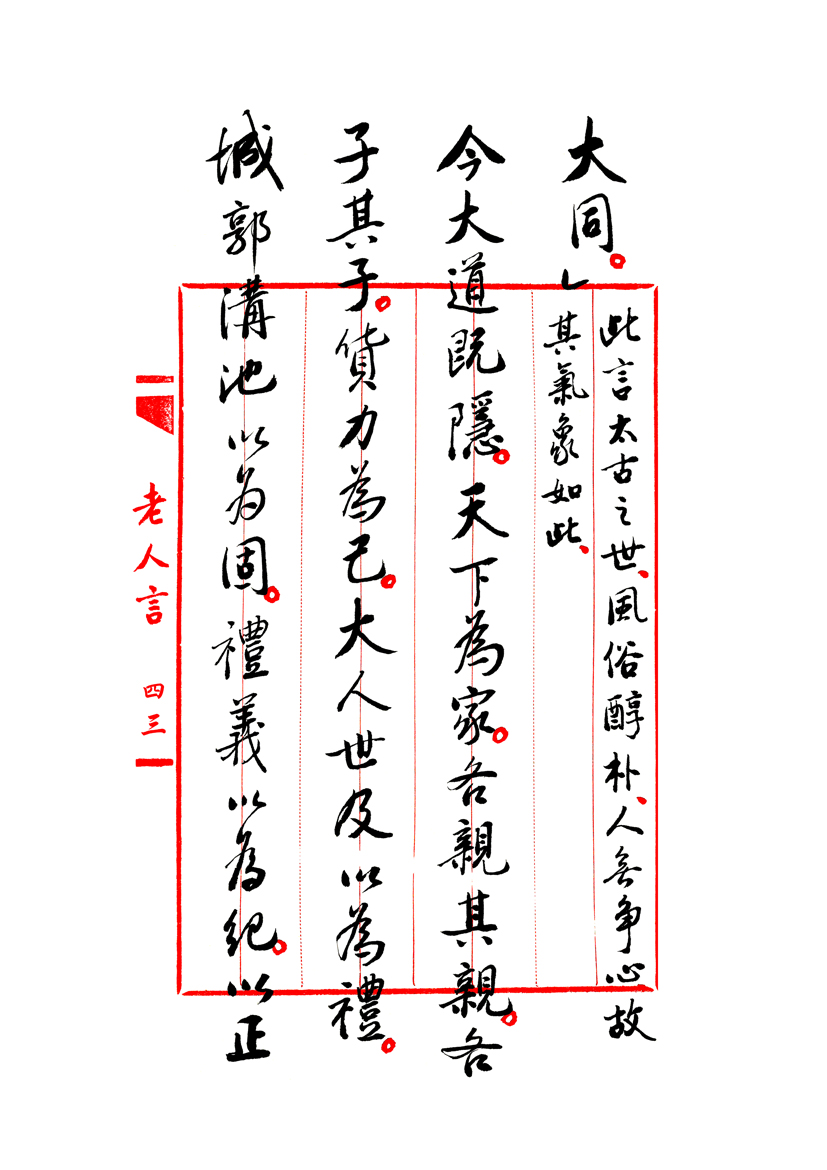 大同。」
此言太古之世、風俗醇朴、人無爭心故
其氣象如此、
今大道既隱。天下為家。各親其親。各
子其子。貨力為己。大人世及以為禮。
城郭溝池以為固。禮義以為紀。以正
老人言 四三